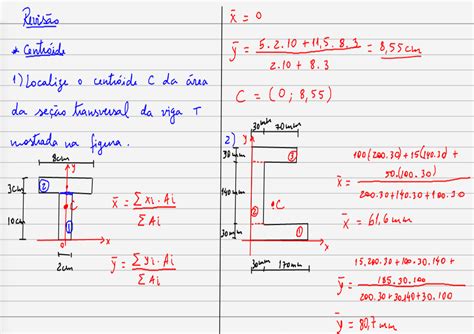 Revisão
* Centróide
1) Localize o centróide C da área
da seção transversal da viga T
mostrada na figura.
8cm
y
2
3cm
C
10cm
1
x
2cm
x̄ = Σ xi . Ai / Σ Ai
ȳ = Σ yi . Ai / Σ Ai
x̄ = 0
ȳ = 5.2.10 + 11,5.8.3 / 2.10 + 8.3 = 8,55cm
C = (0 ; 8,55)
2)
30mm 70mm
y
30mm
3
140mm
2
C
30mm
1
x
30mm 170mm
x̄ = 100(200.30) + 15(140.30) +
50.(100.30)
200.30 + 140.30 + 100.30
x̄ = 61,6mm
ȳ = 15.200.30 + 100.30.140 +
185.30.100
200.30 + 30.140 + 30.100
ȳ = 80,7mm